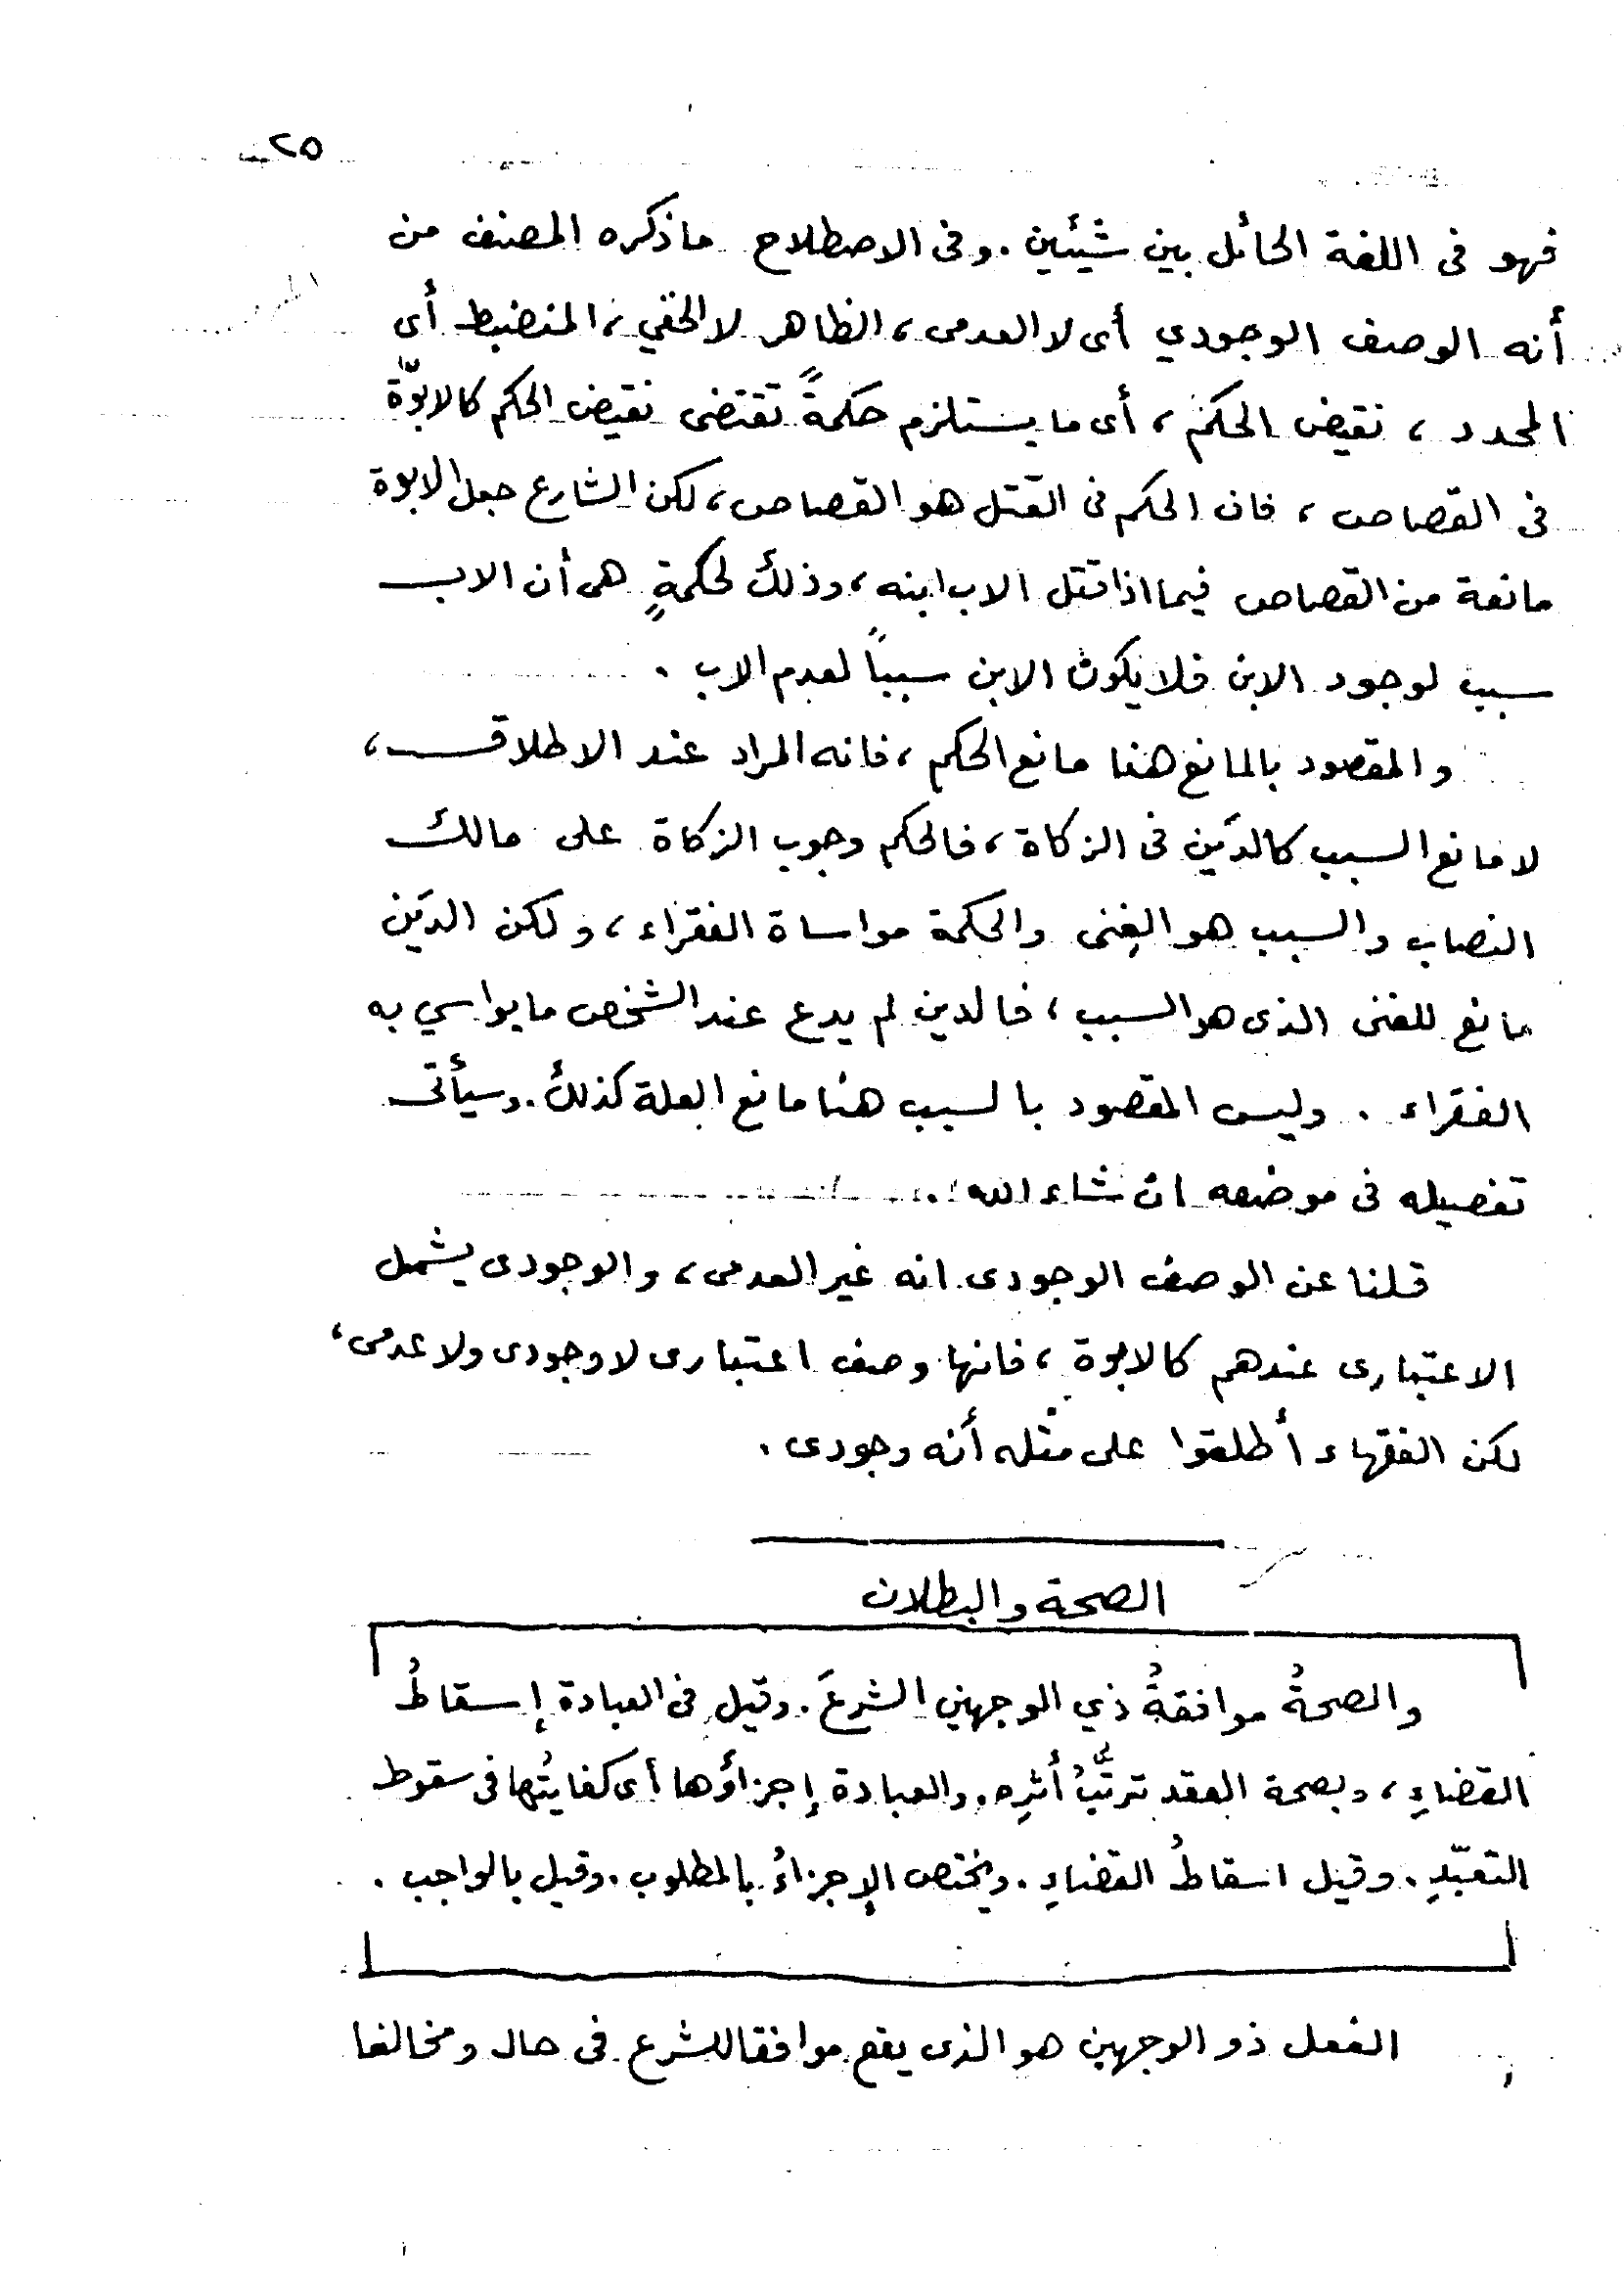 ٢٥
فهو فى اللغة الحائل بين شيئين . وفى الاصطلاح ماذكره المصنف من
أنه الوصف الوجودي أى لا العدمى ، الظاهر لا الخفي ، المنضبط أى
المحدد ، نقيض الحكم ، أى ما يستلزم حكمةً تقتضى نقيض الحكم كالابوّة
فى القصاص ، فان الحكم فى القتل هو القصاص ، لكن الشارع جعل الابوة
مانعة من القصاص فيما اذا قتل الاب ابنه ، وذلك لحكمةٍ هى أن الاب
سبب لوجود الابن فلا يكون الابن سبباً لعدم الاب .
والمقصود بالمانع هنا مانع الحكم ، فانه المراد عند الاطلاق ،
لا مانع السبب كالدَين فى الزكاة ، فالحكم وجوب الزكاة على مالك
النصاب والسبب هو الغِنى والحكمة مواساة الفقراء ، ولكن الدَين
مانع للغنى الذى هو السبب ، فالدين لم يدع عند الشخص ما يواسي به
الفقراء . وليس المقصود بالسبب هنا مانع العلة كذلك . وسيأتى
تفصيله فى موضعه ان شاء الله .
قلنا عن الوصف الوجودى انه غير العدمى ، والوجودى يشمل
الاعتبارى عندهم كالابوة ، فانها وصف اعتبارى لا وجودى ولا عدمى ،
لكن الفقهاء أطلقوا على مثله أنه وجودى .
الصحة والبطلان
والصحةُ موافقةُ ذي الوجهين الشرعَ . وقيل فى العبادة إسقاطُ
القضاءِ ، وبصحة العقد ترتّبُ أثرِه . والعبادة إجزاؤُها أى كفايتُها فى سقوط
التعبّدِ . وقيل اسقاطُ القضاءِ . ويختص الإجزاءُ بالمطلوب . وقيل بالواجب .
الفعل ذو الوجهين هو الذى يقع موافقا للشرع فى حال ومخالفا